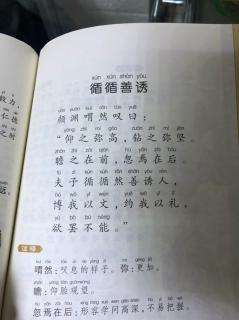 效力，
仁德
之时
话。
xún xún shàn yòu
循循善诱
yán yuān kuì rán tàn yuē
颜渊喟然叹曰：
yǎng zhī mí gāo zuān zhī mí jiān
“仰之弥高，钻之弥坚。
zhān zhī zài qián hū yān zài hòu
瞻之在前，忽焉在后。
fū zǐ xún xún rán shàn yòu rén
夫子循循然善诱人，
bó wǒ yǐ wén yuē wǒ yǐ lǐ
博我以文，约我以礼，
yù bà bù néng
欲罢不能。”
注释
喟然：叹息的样子。弥：更加。
瞻：仰脸观望。
忽焉在后：形容学问高深，不易把握。